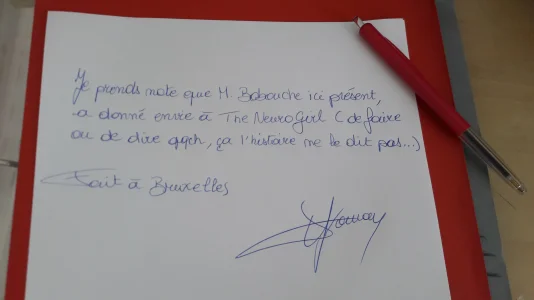 Je prends note que M. Babouche ici présent,
a donné envie à The NeuroGirl (de faire
ou de dire qqch, ça l'histoire ne le dit pas...)
Fait à Bruxelles